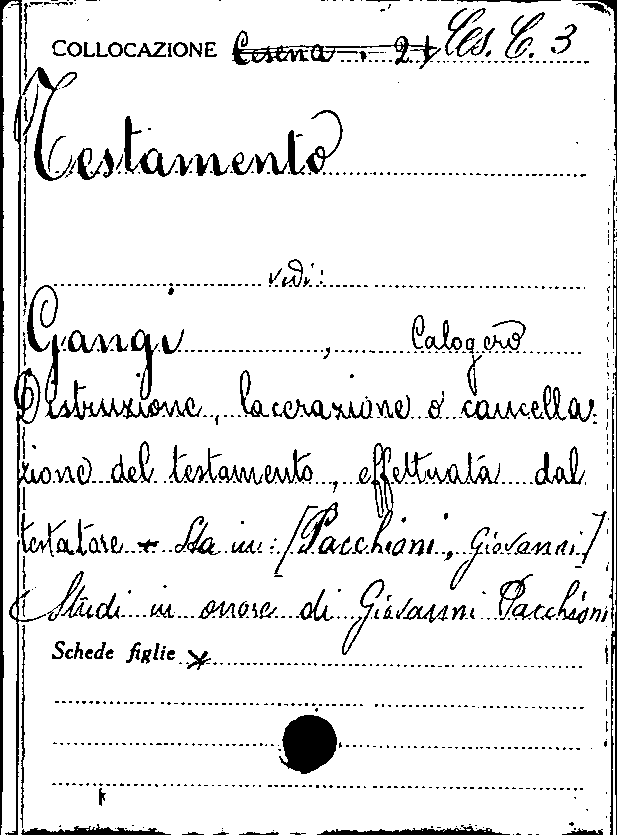 COLLOCAZIONE Cesena. 21 Ces. C. 3
Testamento
vedi:
Gangi, Calogero
Distruzione, lacerazione o cancella:
zione del testamento, effettuata dal
testatore - Sta in: [Pacchioni, Giovanni]
Studi in onore di Giovanni Pacchioni
Schede figlie x